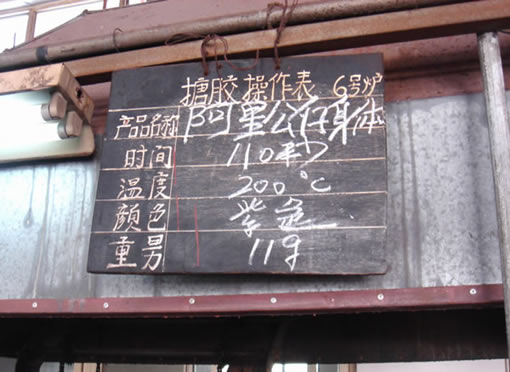 搪胶操作表 6号炉
产品名称 阿里公仔身体
时间 110秒
温度 200℃
颜色 紫色
重另 119